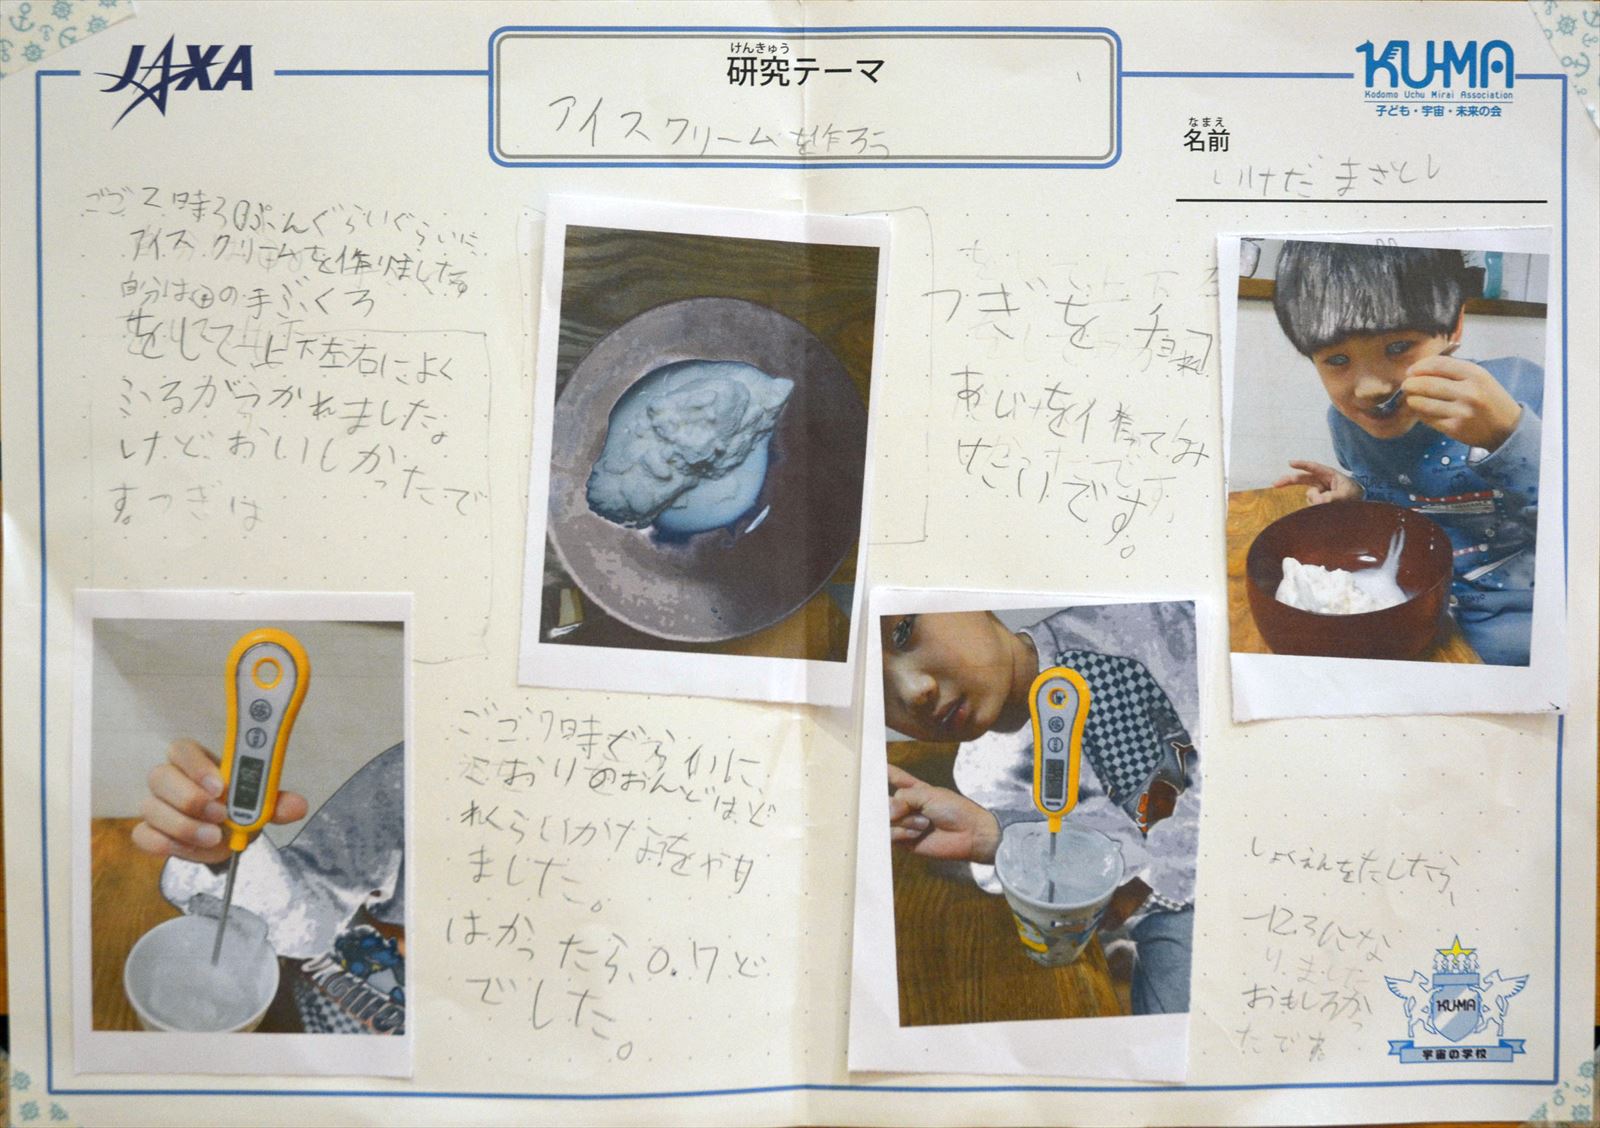 JAXA
けんきゅう
研究テーマ
アイスクリームを作ろう
KU-MA
Kodomo Uchu Mirai Association
子ども・宇宙・未来の会
なまえ
名前
いけだまさとし
ごご7時30ぷんぐらいぐらいに
アイスクリームを作りました
自分は
の手ぶくろ
をして上下左右によく
ふるがつかれました。
けどおいしかったで
す。つぎは
つぎをチョコ
あじを作ってみ
たいです。
ごご7時
に
こおりのおんどはど
れくらいかな
ました。
はかったら、0.7ど
でした。
しょくえんをたしたら、
な
りました
おもしろかっ
たです
KU-MA
宇宙の学校